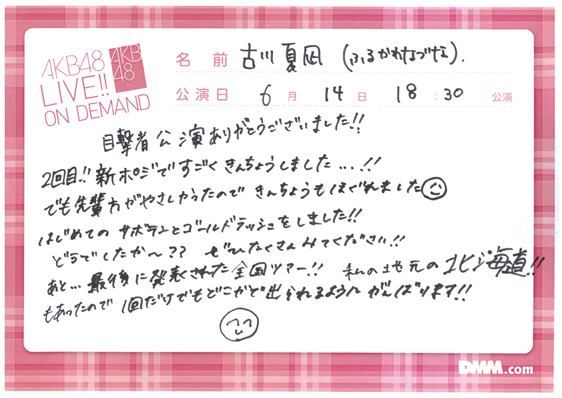 AKB48
LIVE!!
ON DEMAND
AKB
48
名前 古川夏凪 (ふるかわなづな).
公演日 6月 14日 18:30 公演
目撃者公演ありがとうございました!!
2回目!! 新ポジですごくきんちょうしました...!!
でも先輩方がやさしかったので きんちょうもほぐれました
はじめての サボテンとゴールドラッシュをしました!!
どうでしたか〜?? ぜひたくさんみてください!!
あと... 最後に発表された全国ツアー!! 私の地元の北海道!!
もあったので 1回だけでもどこかで出られるようにがんばります!!
DMM.com